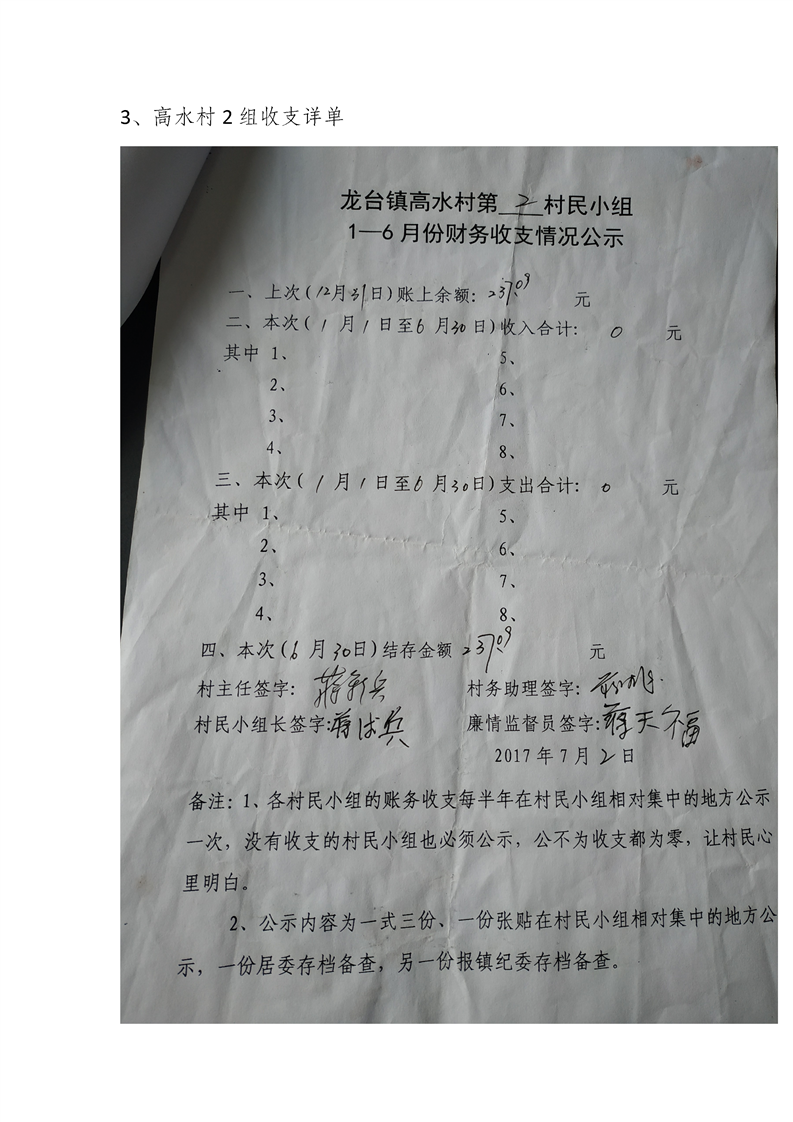 3、高水村 2 组收支详单
龙台镇高水村第 2 村民小组
1—6 月份财务收支情况公示
一、上次(12月31日)账上余额: 237.09 元
二、本次( 1 月 1 日至 6 月 30 日)收入合计: 0 元
其中 1、 5、
2、 6、
3、 7、
4、 8、
三、本次( 1 月 1 日至 6 月 30 日)支出合计: 0 元
其中 1、 5、
2、 6、
3、 7、
4、 8、
四、本次( 6 月 30 日)结存金额 237.09 元
村主任签字: 蒋新兵 村务助理签字:
村民小组长签字: 廉情监督员签字: 天福
2017 年 7 月 2 日
备注:1、各村民小组的账务收支每半年在村民小组相对集中的地方公示
一次，没有收支的村民小组也必须公示，公不为收支都为零，让村民心
里明白。
2、公示内容为一式三份、一份张贴在村民小组相对集中的地方公
示，一份居委存档备查，另一份报镇纪委存档备查。